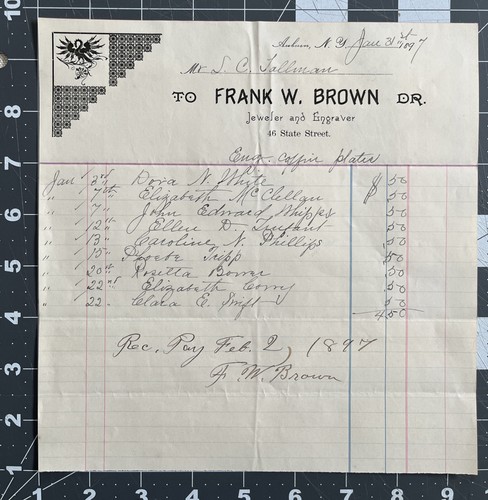 Auburn, N. Y. Jan 31st 1897
Mr S. C. Tallman
TO FRANK W. BROWN DR.
Jeweler and Engraver
46 State Street.
Eng. coffin plates
Jan 3rd Dora N. White $ 50
" 7th Elizabeth McClellan 50
" 7 " John Edward Whipps 50
" 12 " Ellen D. 50
" 13 " Caroline N. Phillips 50
" 15 " Phoebe Tripp 50
" 20th Rosetta Bower 50
" 22nd Elizabeth 50
" 22 " Clara E. Swift 50
4 50
Rec. Pay Feb. 2, 1897
F. W. Brown
10
9
8
7
6
5
4
3
2
1
1 2 3 4 5 6 7 8 9